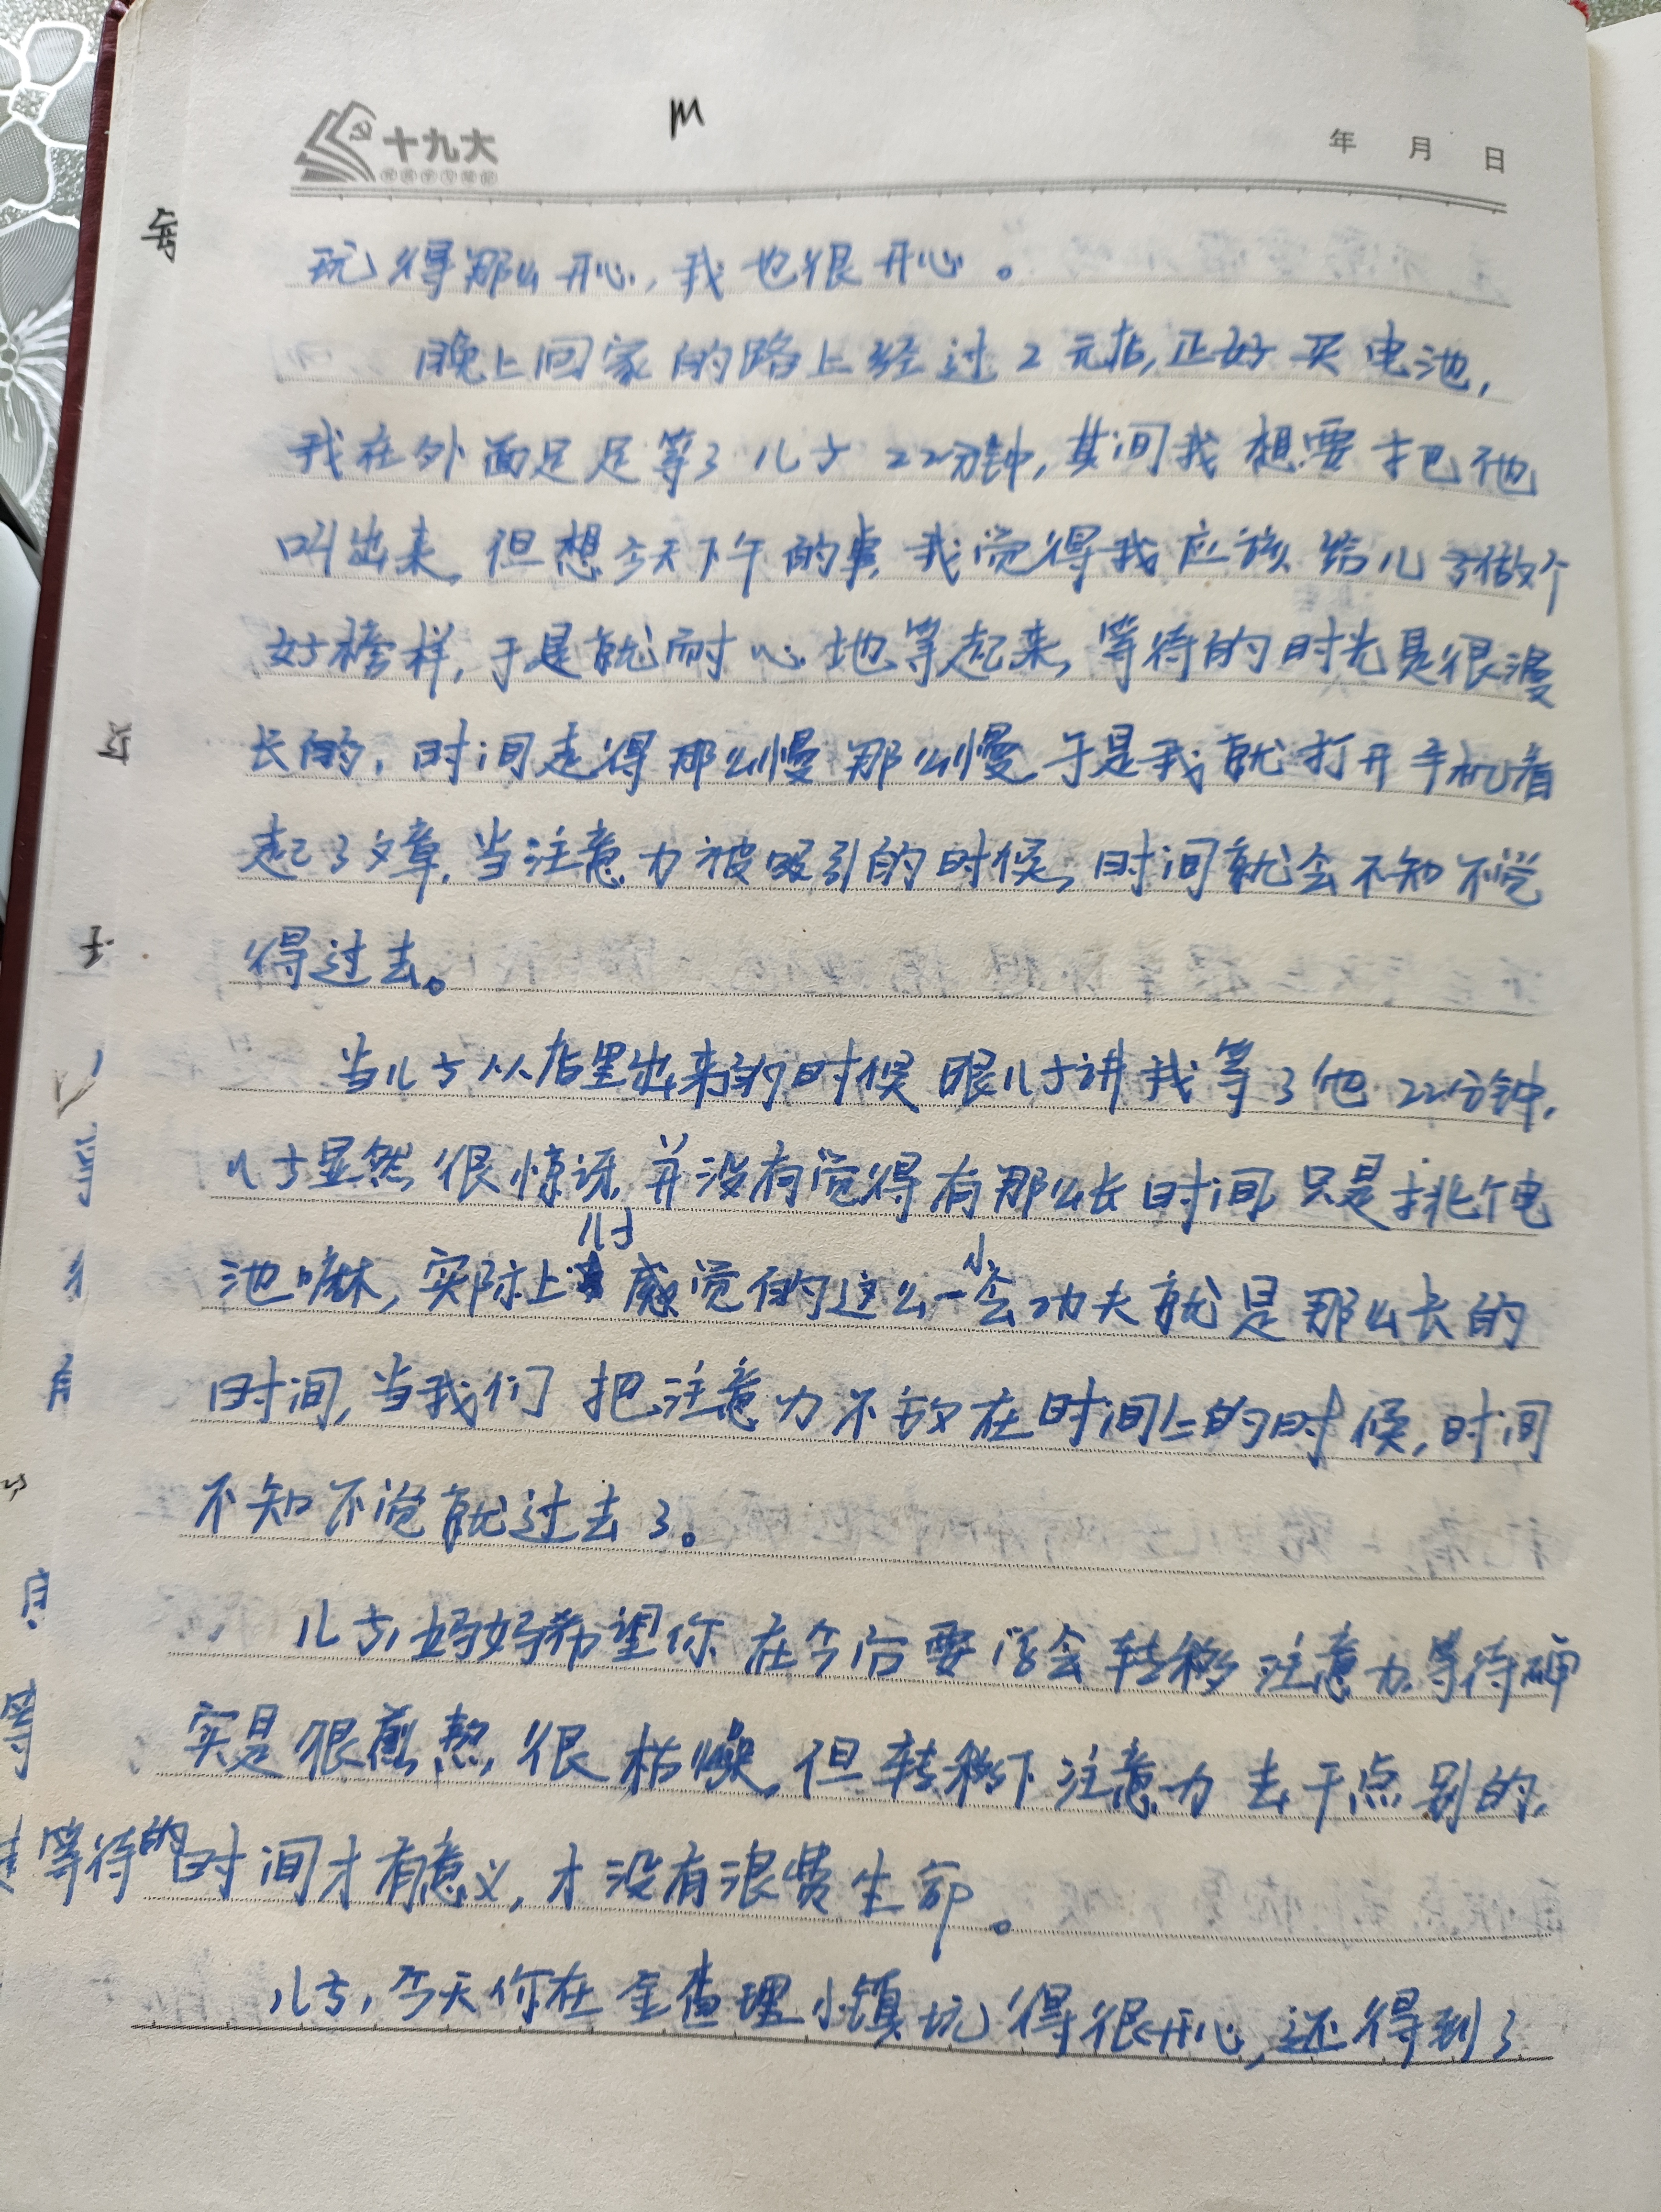 m
十九大
年 月 日
玩得那么开心,我也很开心。
晚上回家的路上经过2元店,正好买电池,
我在外面足足等了儿子22分钟,其间我想要把他
叫出来,但想今天下午的事,我觉得我应该给儿子做个
好榜样,于是就耐心地等起来,等待的时光是很漫
长的,时间走得那么慢那么慢,于是我就打开手机看
起了文章,当注意力被吸引的时候,时间就会不知不觉
得过去。
当儿子从店里出来的时候跟儿子讲我等了他22分钟,
儿子显然很惊讶,并没有觉得有那么长时间,只是挑个电
池嘛,实际上儿子感觉的这么一小会功夫就是那么长的
时间,当我们把注意力不放在时间上的时候,时间
不知不觉就过去了。
儿子,妈妈希望你在今后要学会转移注意力,等待确
实是很煎熬,很枯燥,但转移下注意力去干点别的,
等待的时间才有意义,才没有浪费生命。
儿子,今天你在金查理小镇玩得很开心,还得到了